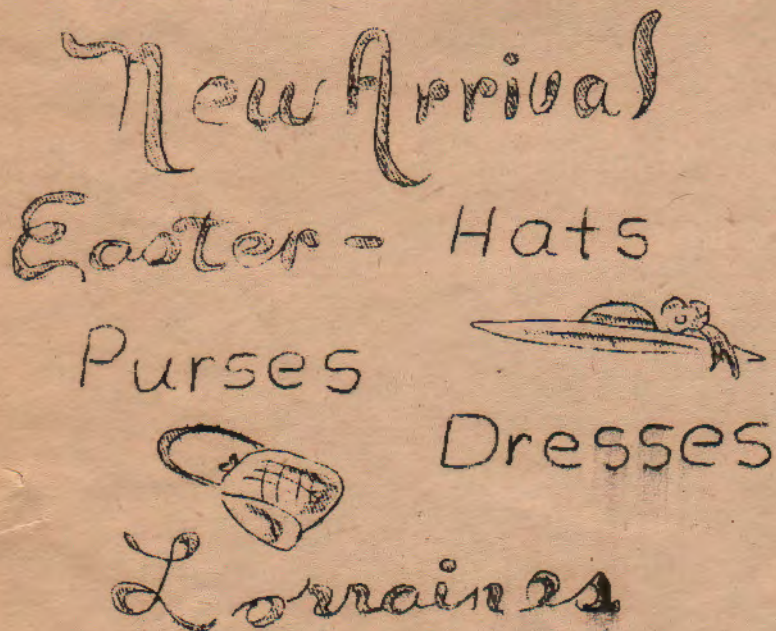 New Arrival
Easter - Hats
Purses
Dresses
Lorraines